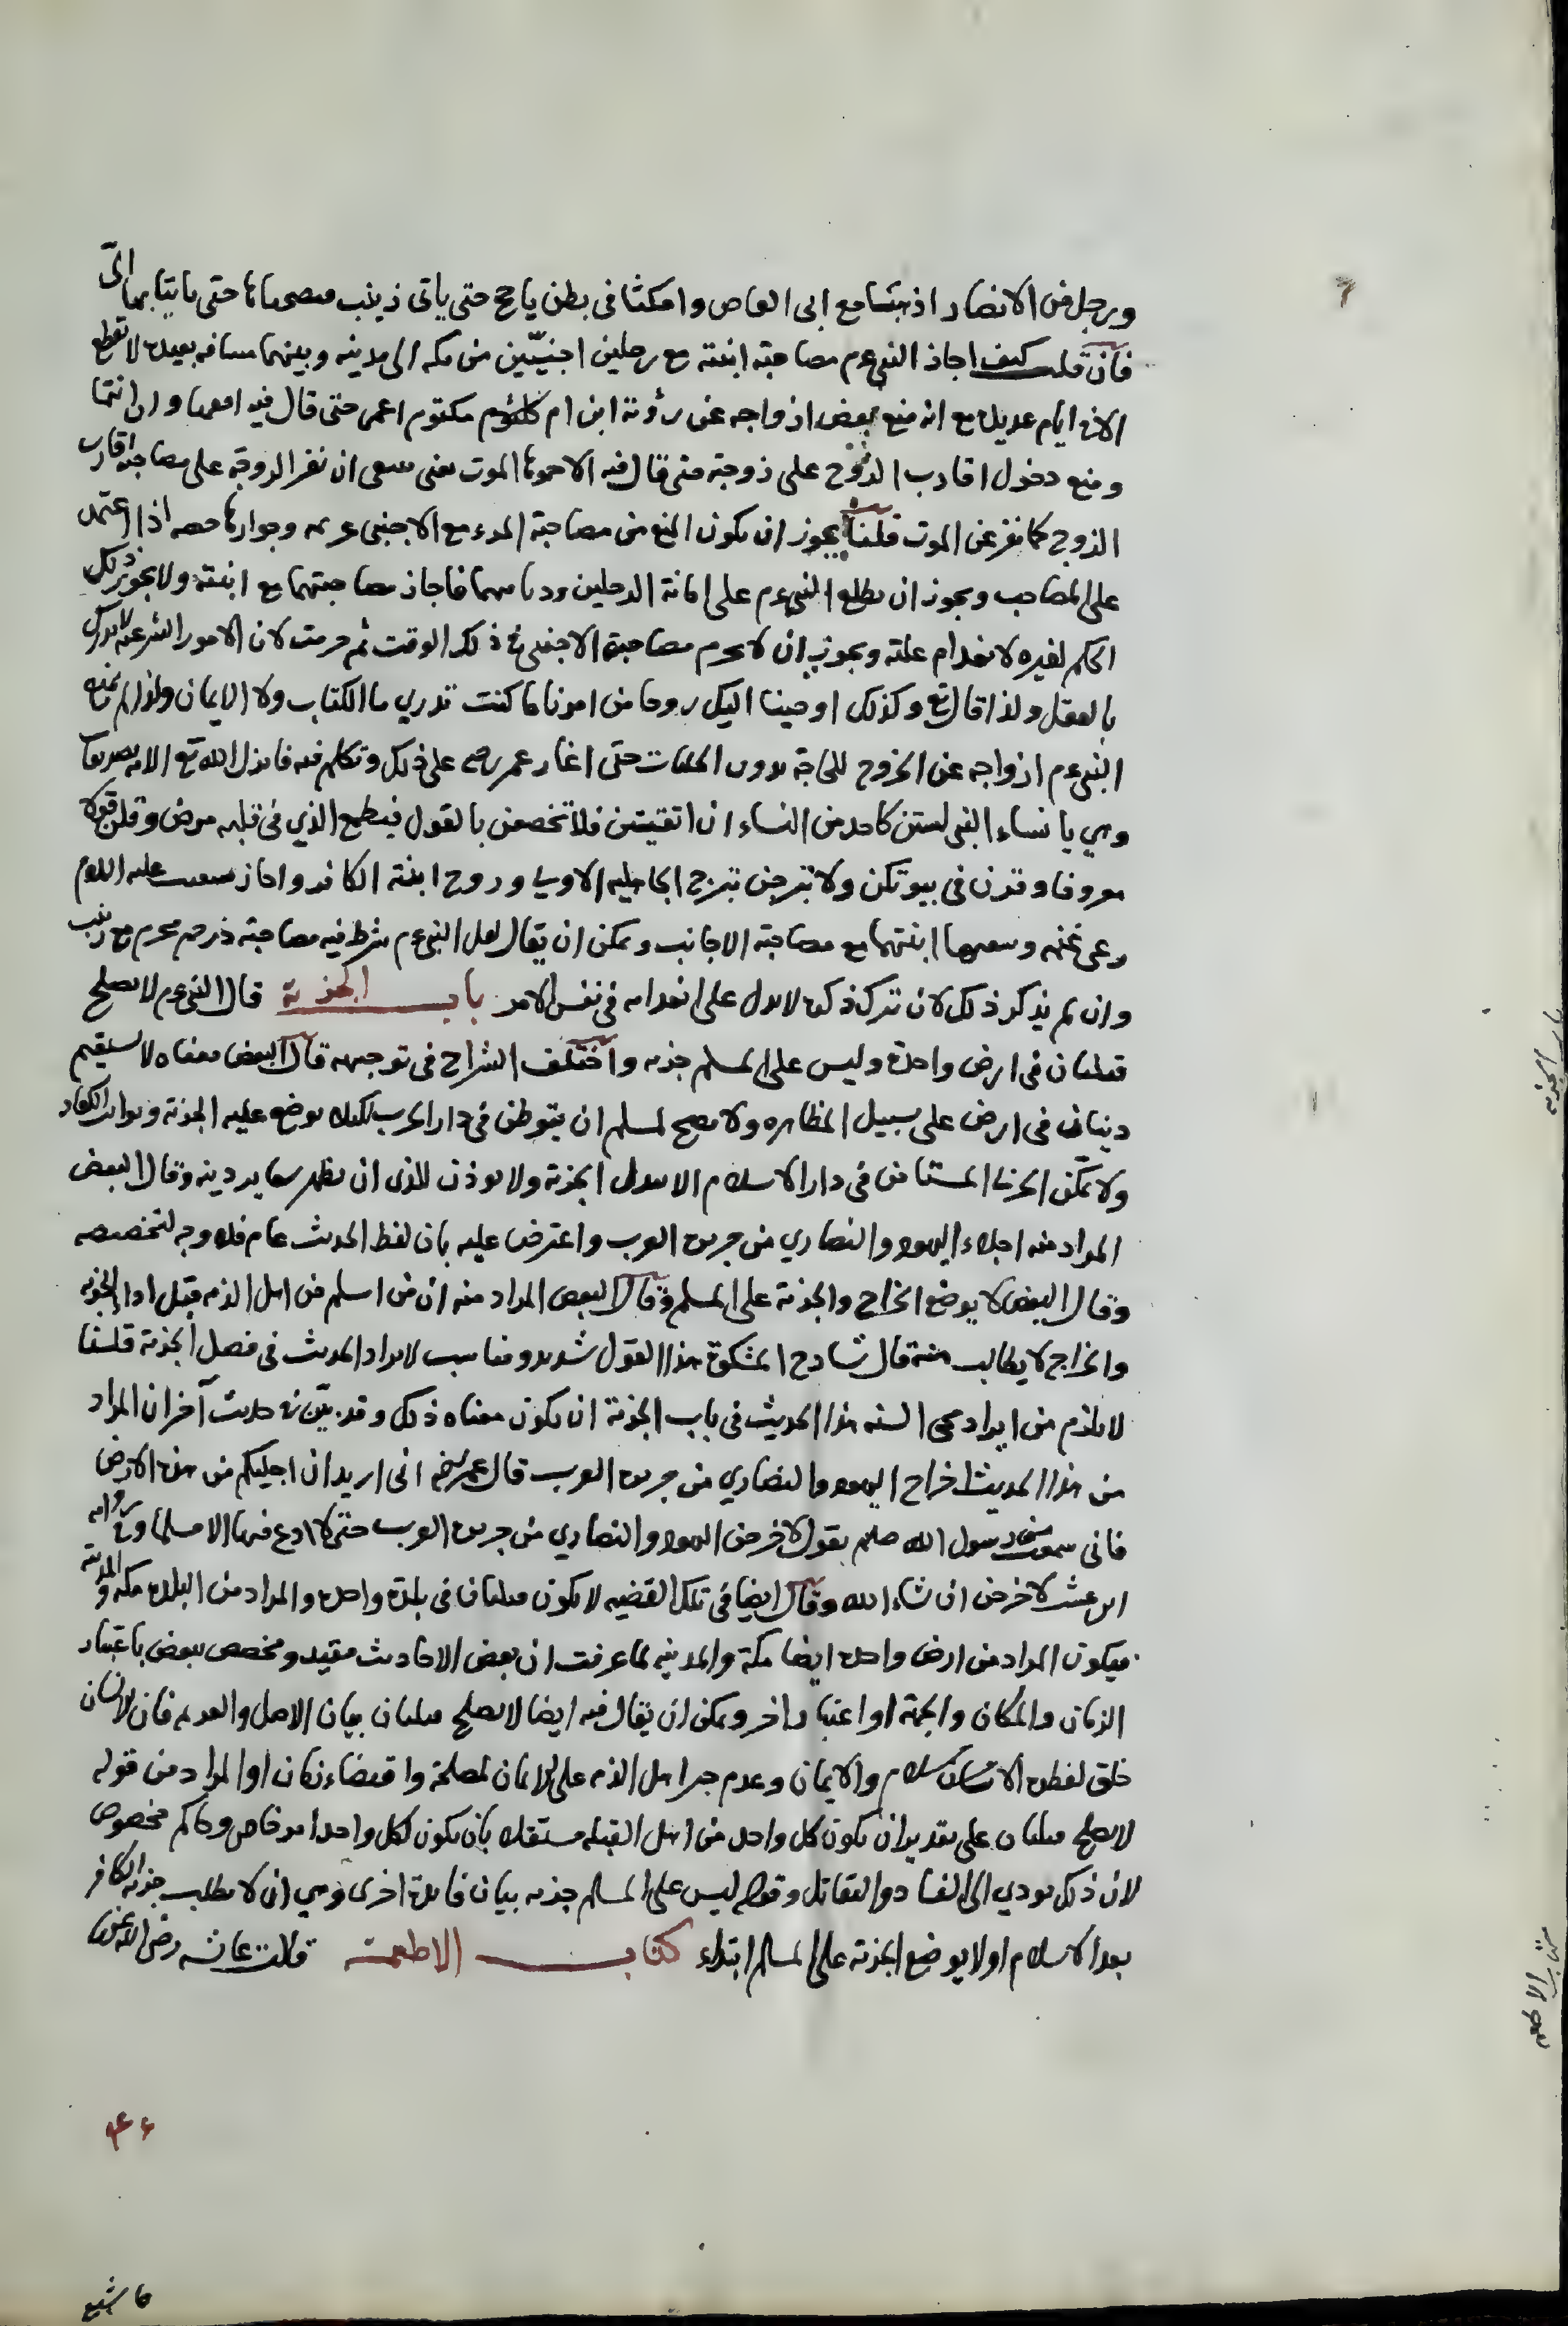 ورجل من الانصار اذهبتما مع ابى العاص وامكثا فى بطن ياجج حتى ياتى زينب فصحباها حتى ياتيا بها الىّ
فان قلت كيف اجاز النبى عم مصاحبة ابنته مع رجلين اجنبيّين من مكه الى مدينه وبينهما مسافه بعيدة لا تقطع
الا فى ايام عديدة مع انه منع بعض ازواجه عن رؤية ابن ام مكتوم اعمى حتى قال فيه افعميا وان انتما
ومنع دخول اقارب الزوج على زوجته حتى قال فيه الاحموها الموت يعنى ينبغى ان نفر الزوجة على مصاحبة اقارب
الزوج كما نفر عن الموت قلنا يجوز ان يكون المنع من مصاحبة المرء مع الاجنبى عزيمه وجوازها رخصه اذا اعتمد
على المصاحب ويجوز ان يطلع النبى عم على امانة الرجلين وديانتهما فاجاز مصاحبتهما مع ابنته ولا يجوز ذلك
الحكم لغيره لانعدام علته ويجوز ان لا يحرم مصاحبة الاجنبى فى ذلك الوقت ثم حرمت لان الامور الشرعيه لا تدرك
بالعقل ولذا قال تع وكذلك اوحينا اليك روحا من امرنا ما كنت تدري ما الكتاب ولا الايمان ولذا لم يمنع
النبى عم ازواجه عن الخروج للحاجة بدون الجلباب حتى اغار عمر رضى على ذلك وتكلم فيه فانزل الله تع الايه
وهي يا نساء النبى لستن كاحد من النساء ان اتقيتن فلا تخضعن بالقول فيطمع الذي فى قلبه مرض وقلن قولا
معروفا وقرن فى بيوتكن ولا تبرجن تبرج الجاهليه الاولي وزوج ابنته الكافر واجاز شعيب عليه السلام
رعى غنمه وسقيها ابنتهما مع مصاحبة الاجانب ويمكن ان يقال لعل النبى عم شرط فيه مصاحبة ذو رحم محرم مع زينب
وان لم يذكر ذلك لان ترك ذكره لا يدل على انعدامه فى نفس الامر باب الجزية قال النبى عم لا يصلح
قبلتان فى ارض واحدة وليس على المسلم جزيه واختلف الشراح فى توجيهه قال البعض معناه لا يستقيم
دينان فى ارض على سبيل المظاهره ولا يصح لمسلم ان يتوطن فى دار الحرب لكيلا يوضع عليه الجزية الكفار
ولا يمكّن الحربى المستامن فى دار الاسلام الا ببدل الجزية ولا يوذن للذمى ان يظهر شعاير دينه وقال البعض
المراد منه اجلاء اليهود والنصاري من جزيرة العرب واعترض عليه بان لفظ الحديث عام فلا وجه لتخصيصه
وقال البعض لا يوضع الخراج والجزية على المسلم وقال البعض المراد منه ان من اسلم من اهل الذمه قبل اداء الجزيه
والخراج لا يطالب منه قال شارح المشكوة هذا القول شديد ومناسب لايراد الحديث فى فصل الجزية قلنا
لا يلزم من ايراد محى السنه هذا الحديث فى باب الجزية ان يكون معناه ذلك وقد بيّن فى حديث آخر ان المراد
من هذا الحديث اخراج اليهود والنصاري من جزيرة العرب قال عمر رضه انى اريد ان اجليكم من هذه الارض
فانى سمعت رسول الله صلعم يقول لاخرجن اليهود والنصاري من جزيرة العرب حتى لا ادع فيها الا مسلما وفى روايه
لئن عشت لاخرجن ان شاء الله وقال ايضا فى تلك القضيه لا يكون قبلتان فى بلدة واحدة والمراد من البلدة مكه والمدينة
فيكون المراد من ارض واحدة ايضا مكة والمدينه لما عرفت ان بعض الاحاديث مقيد ومخصص لبعض باعتبار
الزمان والمكان والجهة او اعتبار اخر ويمكن ان يقال فيه ايضا لا يصلح قبلتان بيان الاصل والعزيمه فان الانسان
خلق لفطرة الاسلام والايمان وعدم جبر اهل الذمه على الايمان لمصلحة واقتضاء زمان او المراد من قوله
لا يصلح قبلتان على تقدير ان يكون كل واحد من اهل القبله مستقلا بان يكون لكل واحد امر خاص وحاكم مخصوص
لان ذلك يودي الى الفساد والتقاتل وقوله ليس على المسلم جزيه بيان فائدة اخرى وهي ان لا يطلب جزية الكافر
بعد الاسلام او لا يوضع الجزية على المسلم ابتداء كتاب الاطعمة قالت عائشه رضى الله عنها
باب الجزيه
كتاب الاطعمه